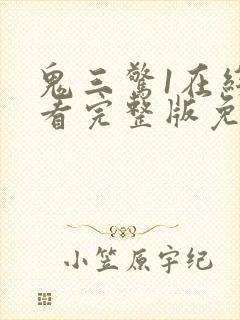 鬼三驚1在終
看完整版免
小笠原宇纪